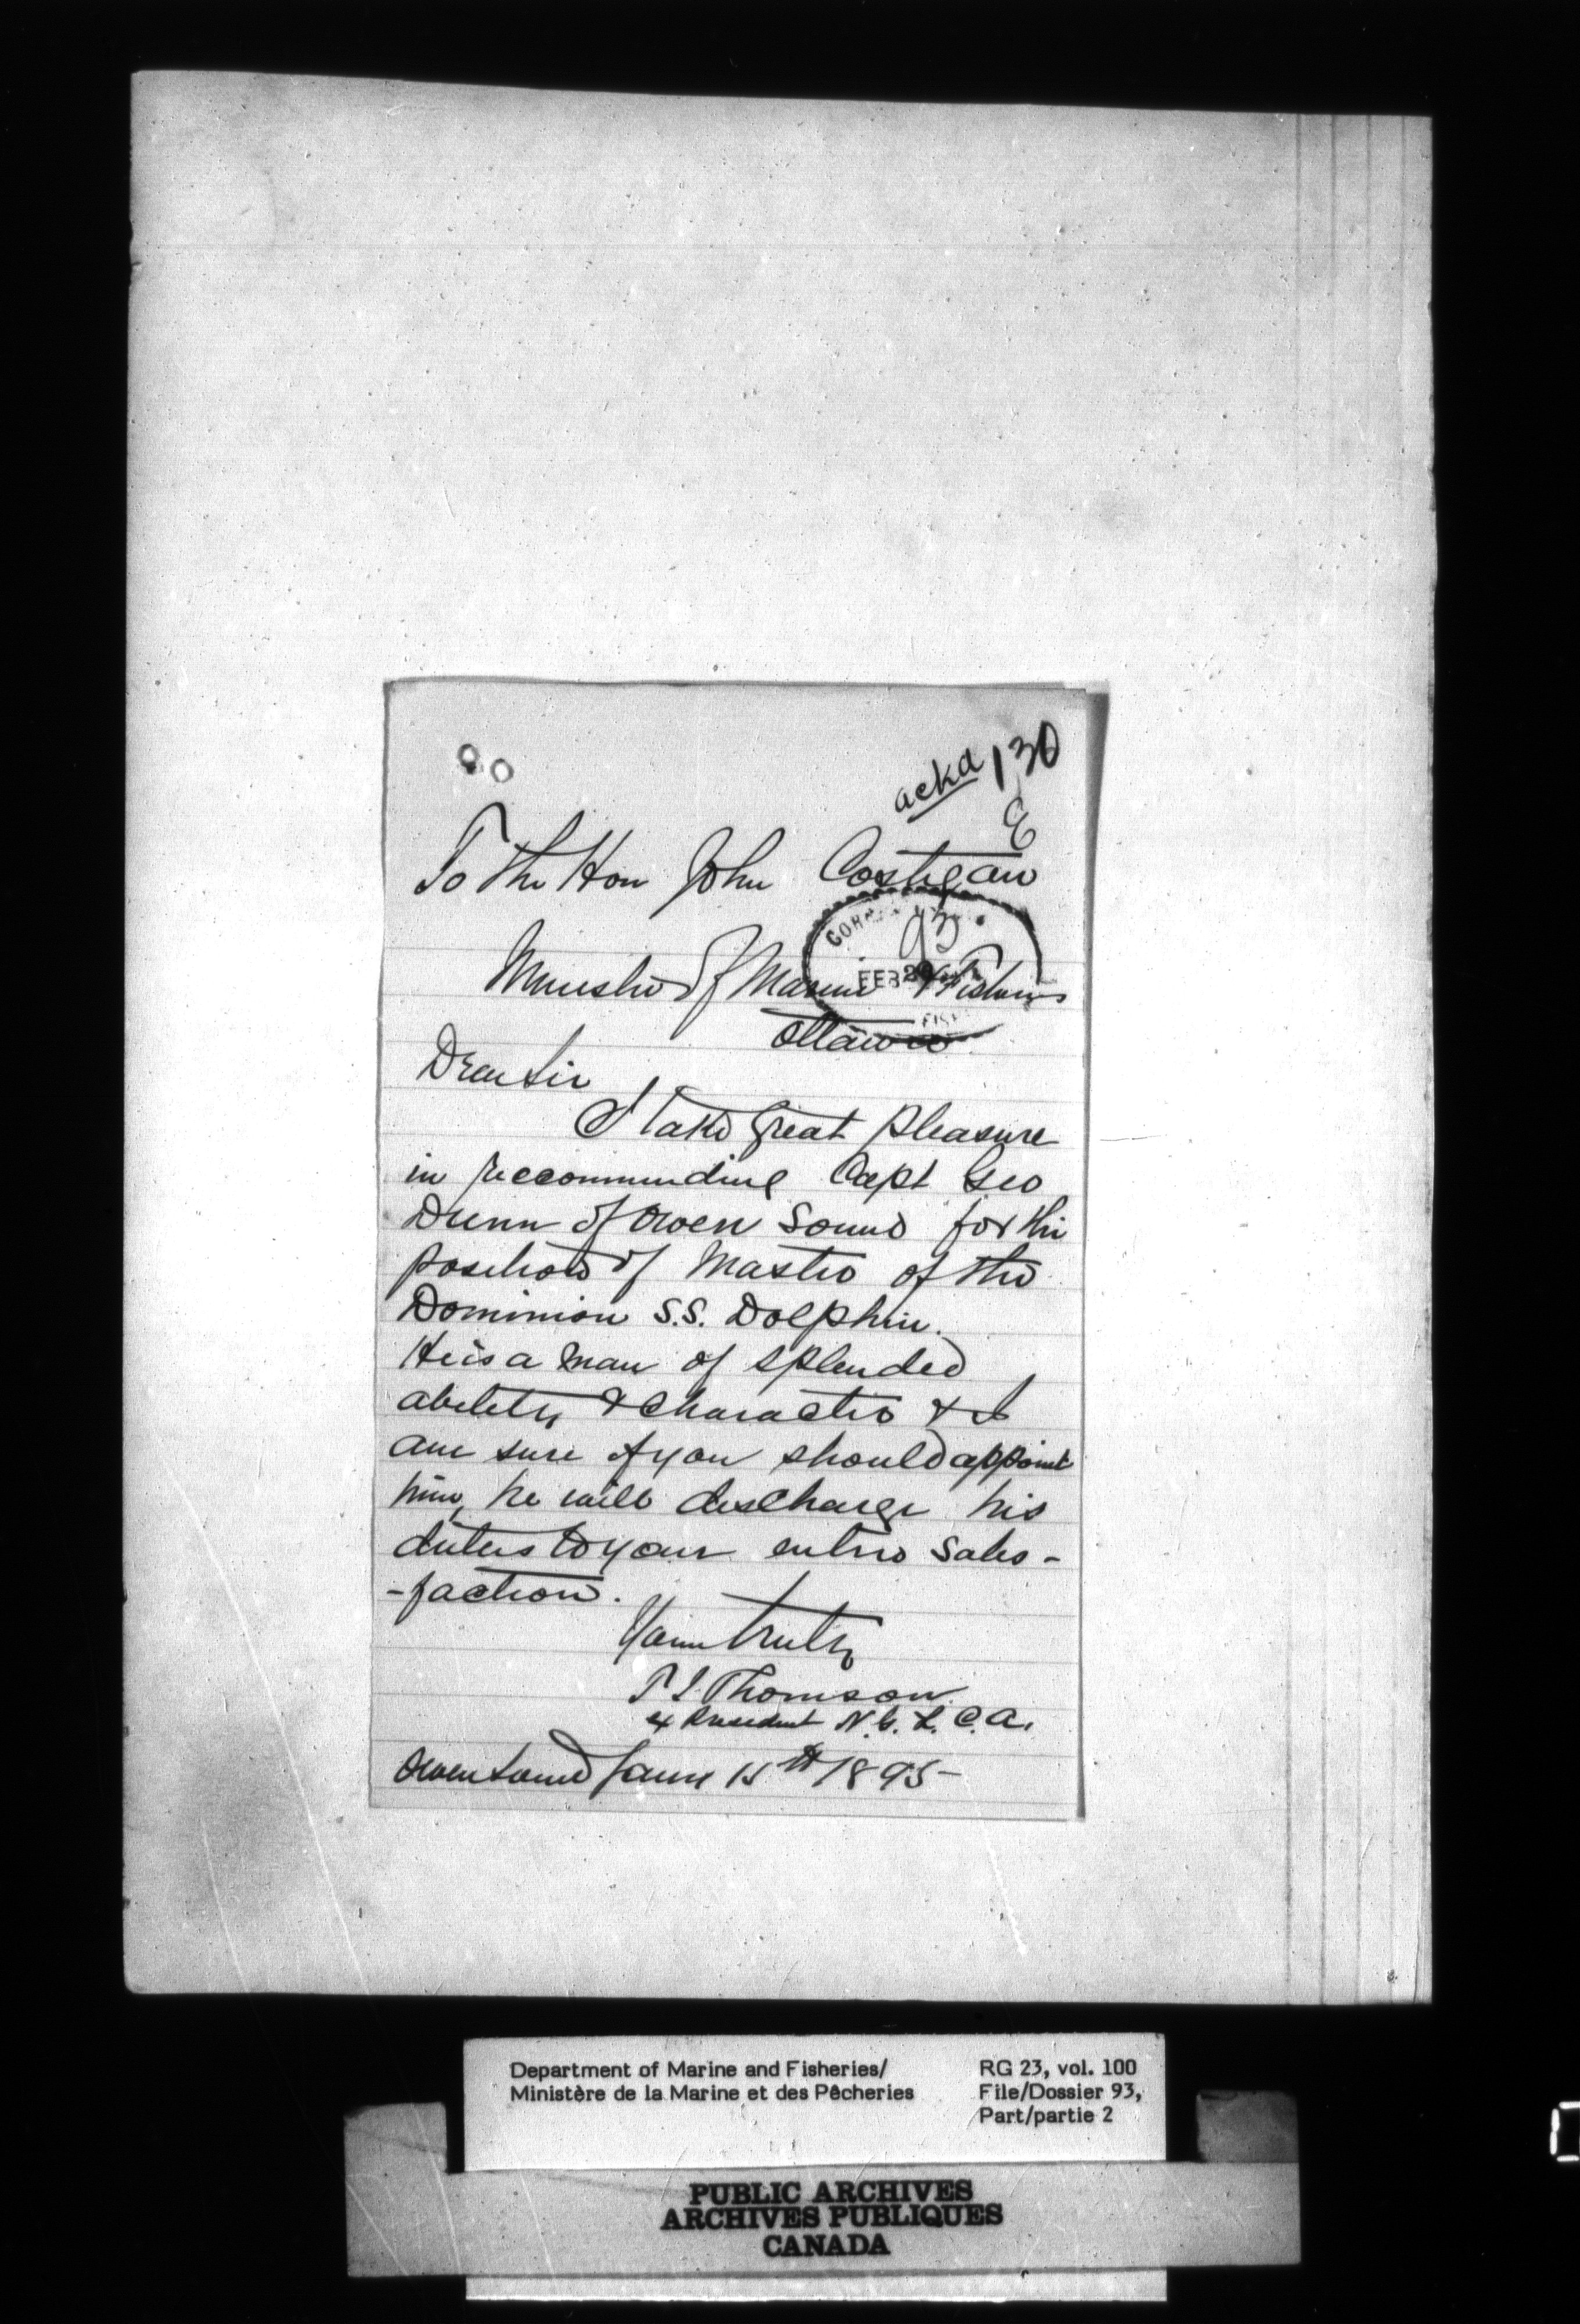 ackd 130
E
To The Hon John Costigan
93
FEB
Minister of Marine & Fisheries
FISH
Ottawa
Dear Sir
I take great pleasure
in reccommending Capt Geo
Dunn of Owen Sound for the
position of Master of the
Dominion S.S. Dolphin.
He is a man of splendid
ability & character & I
am sure if you should appoint
him, he will discharge his
duties to your entire satis-
-faction.
Yours truly
Thomson
ex President N.G.L.C.A.
Owen Sound Jany 15th 1895-
Department of Marine and Fisheries/
Ministère de la Marine et des Pêcheries
RG 23, vol. 100
File/Dossier 93,
Part/partie 2
PUBLIC ARCHIVES
ARCHIVES PUBLIQUES
CANADA